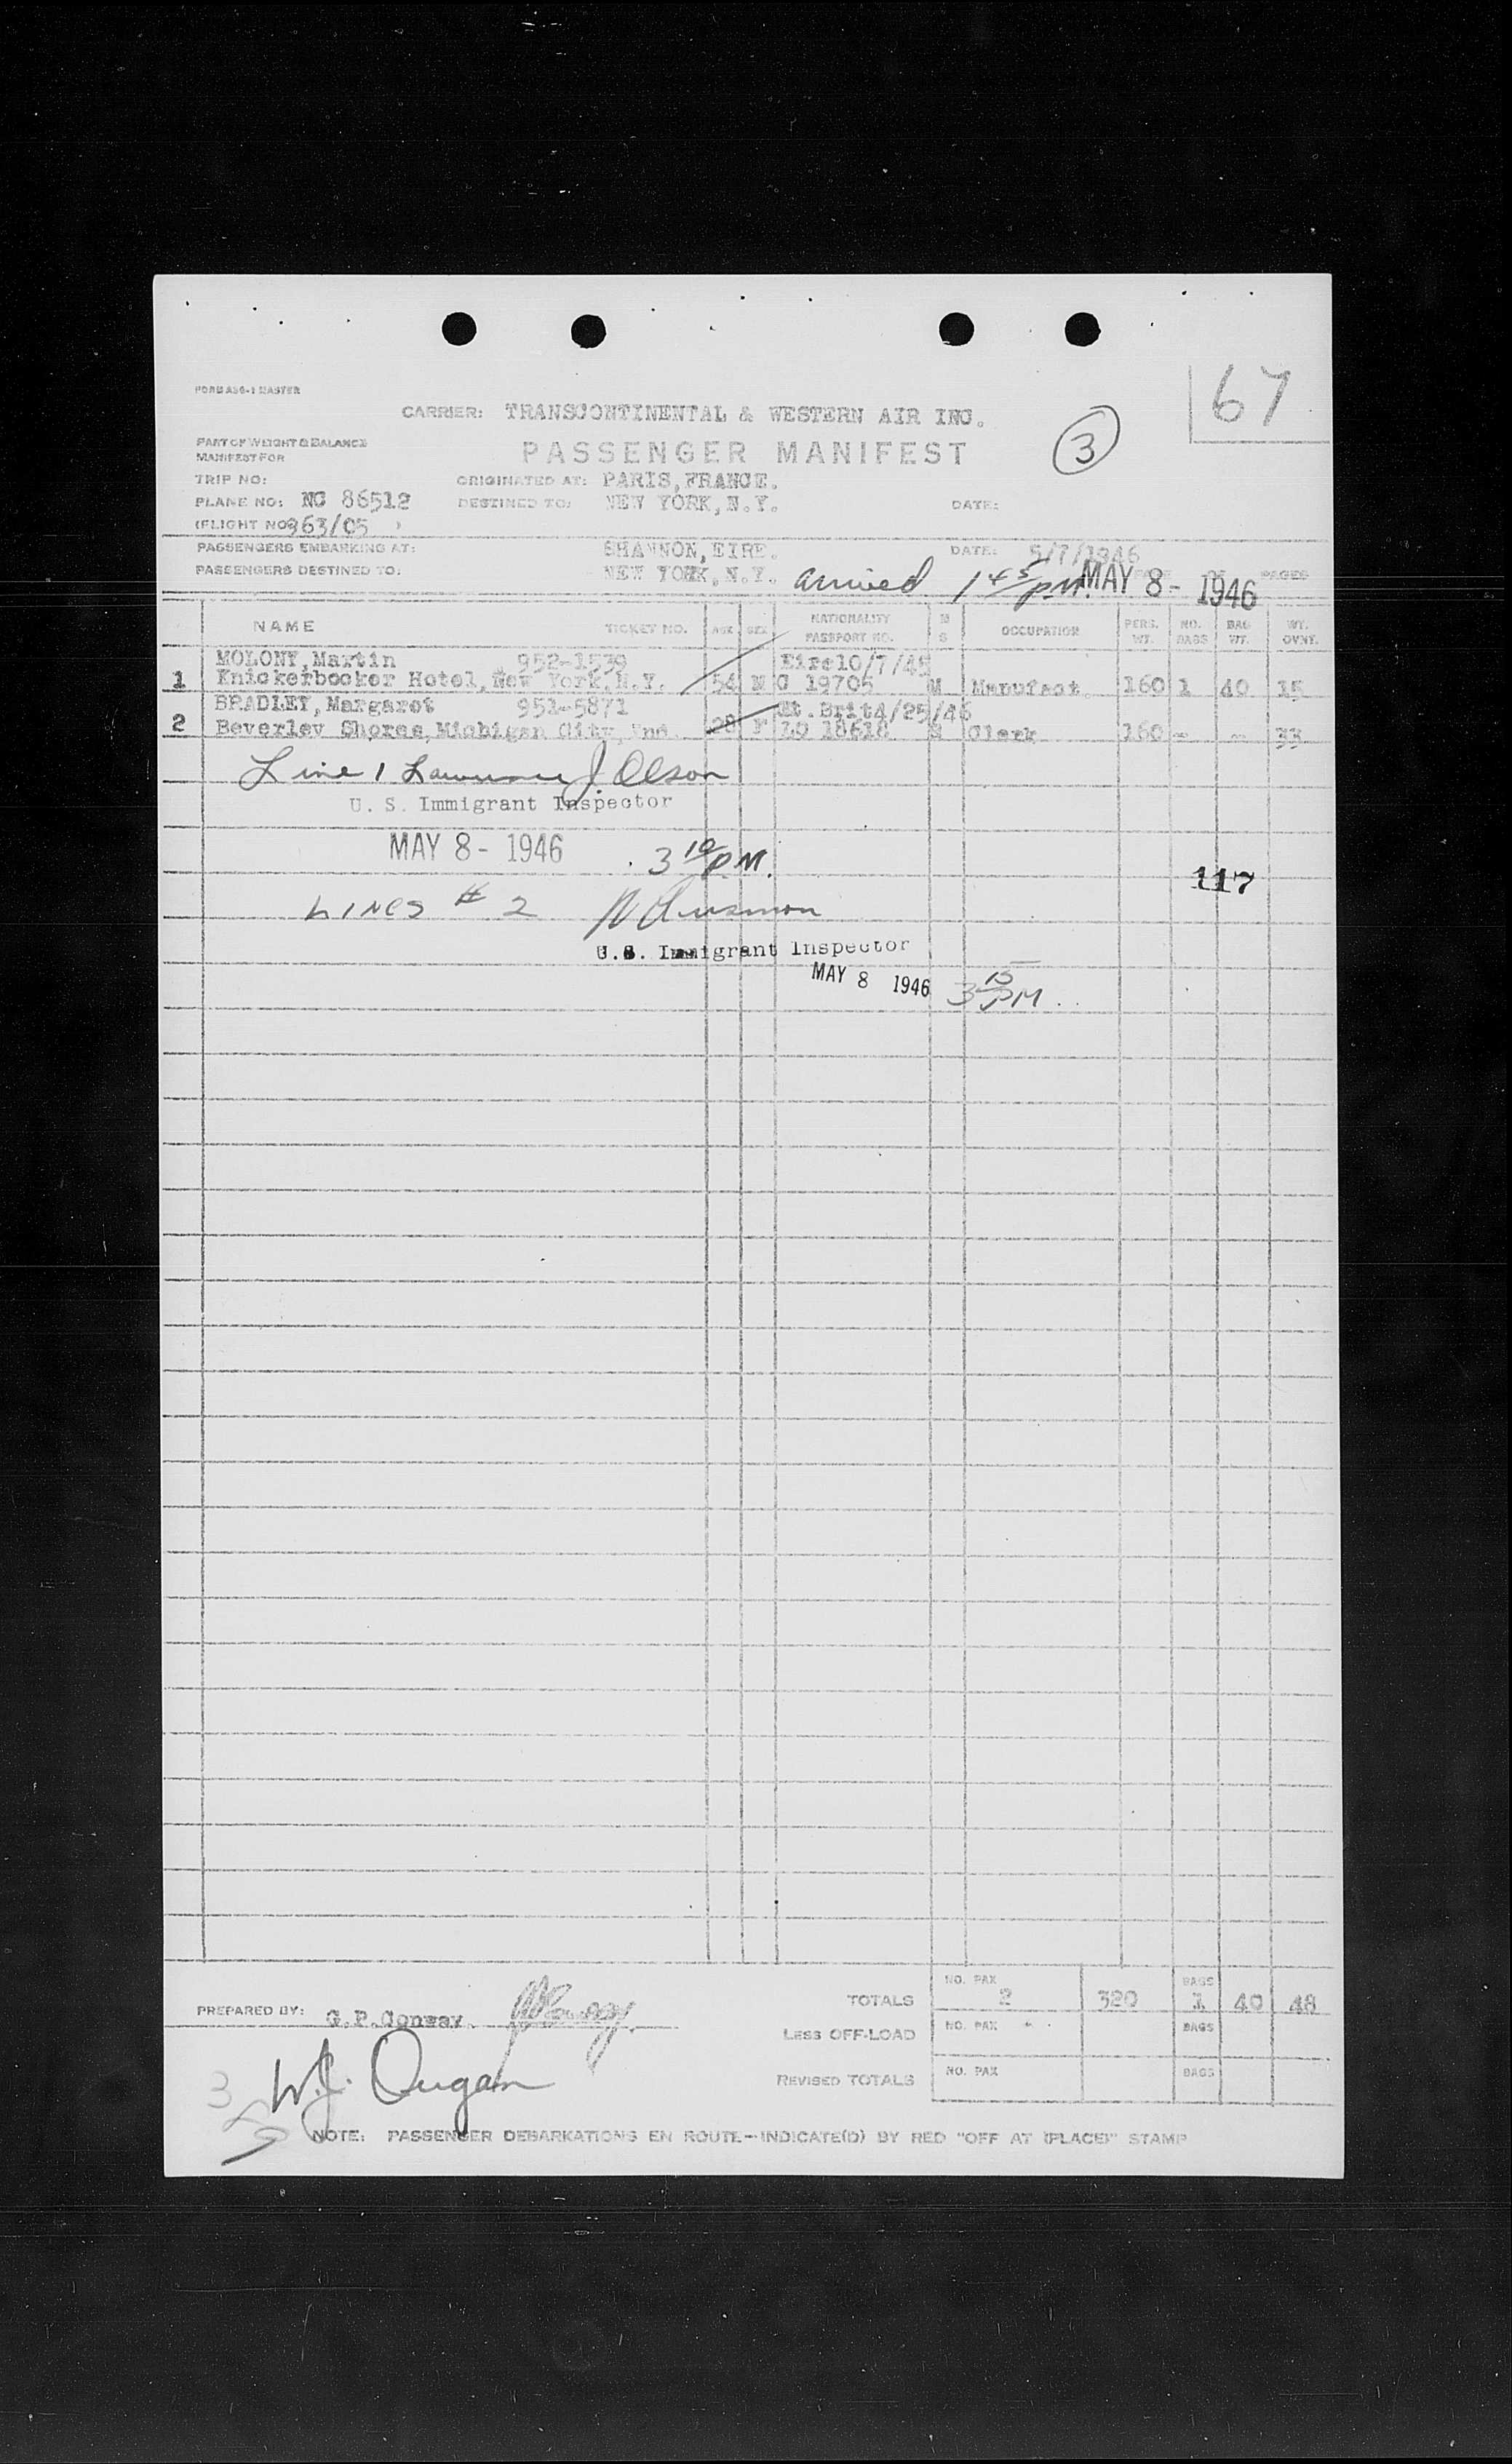 67
FORM A36-1 MASTER
CARRIER: TRANSCONTINENTAL & WESTERN AIR INC.
PART OF WEIGHT & BALANCE
MANIFEST FOR
PASSENGER MANIFEST
3
TRIP NO: ORIGINATED AT: PARIS, FRANCE.
PLANE NO: NC 86512 DESTINED TO: NEW YORK, N.Y. DATE:
(FLIGHT NO 963/05 )
PASSENGERS EMBARKING AT: SHANNON, EIRE. DATE: 5/7/1946
PASSENGERS DESTINED TO: NEW YORK, N.Y. arrived 1 45 PM. MAY 8 - 1946 PAGES
NAME TICKET NO. AGE SEX NATIONALITY PASSPORT NO. M S OCCUPATION PERS. WT. NO. BAGS BAG WT. WT. OVNT.
MOLONY, Martin 952-1539 Eire 10/7/45
1 Knickerbocker Hotel, New York, N.Y. 54 M C 19705 M Manufact. 160 1 40 15
BRADLEY, Margaret 951-5871 Gt. Brit 4/25/46
2 Beverley Shores, Michigan City, Ind. 28 F LO 18618 S Clerk 160 - - 33
Line 1 Lawrence J. Olson
U. S. Immigrant Inspector
MAY 8 - 1946 3 10 P.M.
117
LINES # 2
U.S. Immigrant Inspector
MAY 8 1946 3 15 PM
PREPARED BY: G.P. Conway.
TOTALS NO. PAX 2 320 BAGS 1 40 48
Less OFF-LOAD NO. PAX BAGS
REVISED TOTALS NO. PAX BAGS
W.J. Dugan
NOTE: PASSENGER DEBARKATIONS EN ROUTE—INDICATE(D) BY RED "OFF AT (PLACE)" STAMP